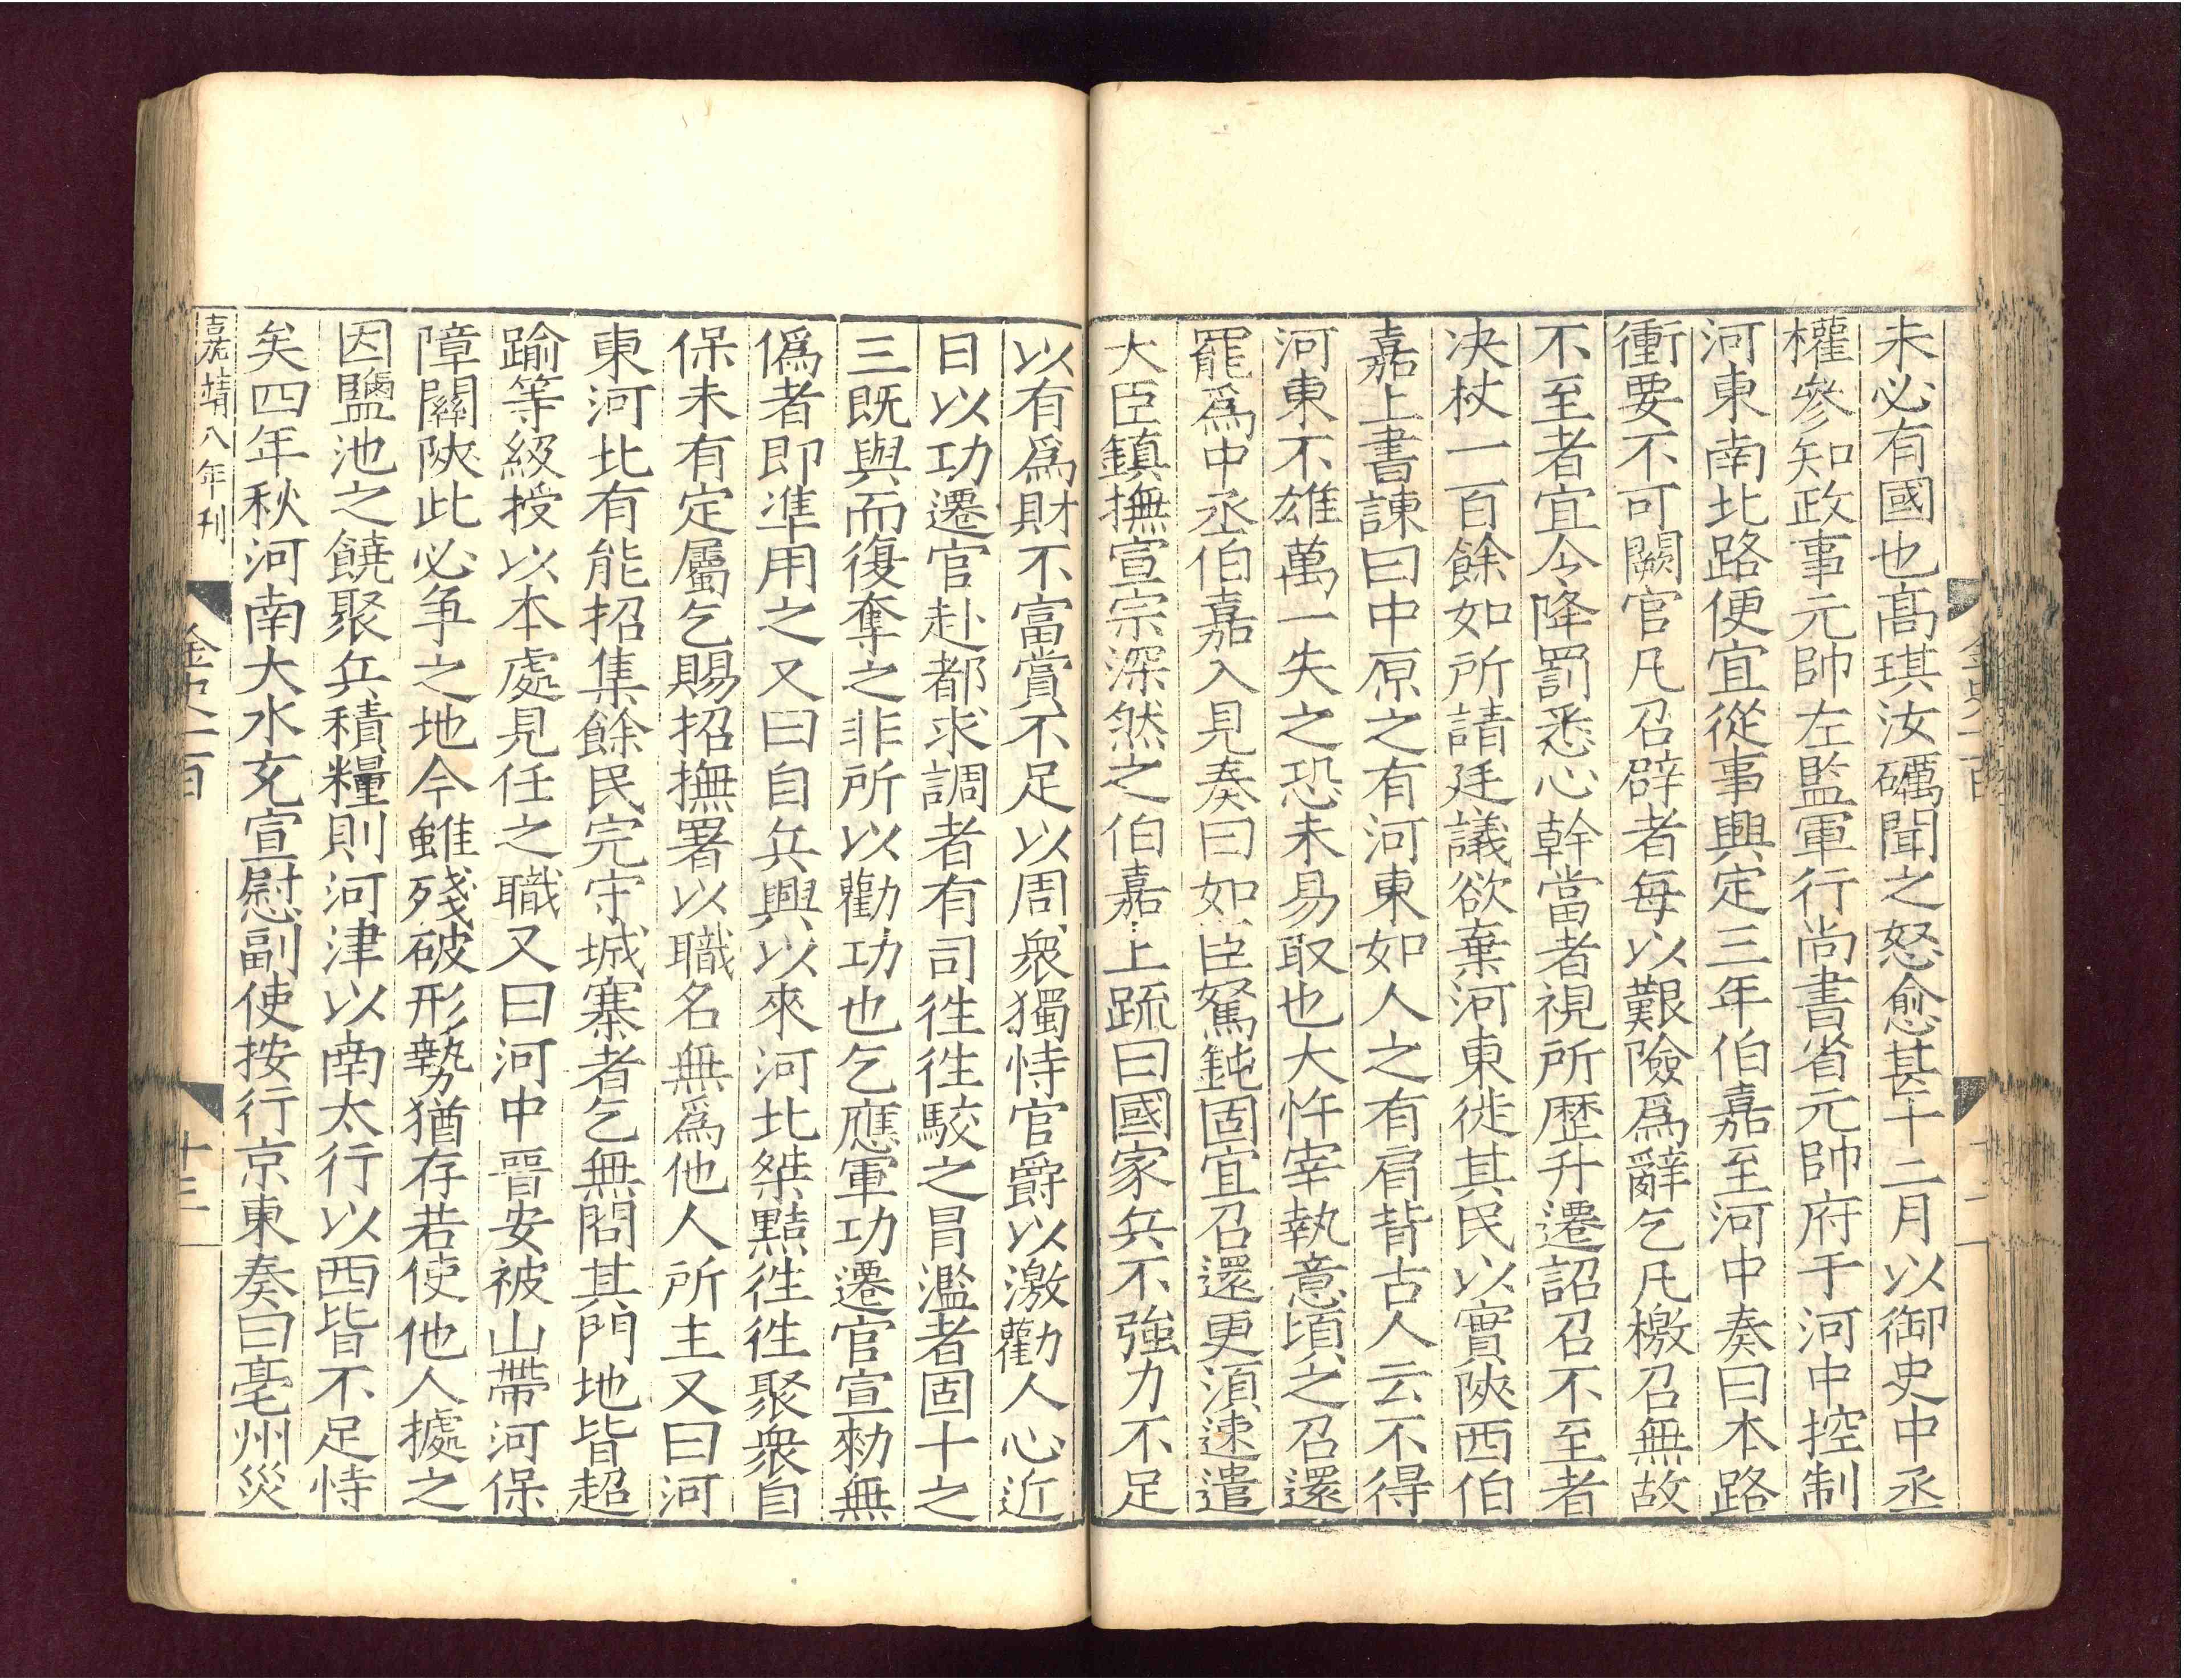 未必有國也髙琪汝礪聞之怒愈甚十二月以御史中丞
權參知政事元帥左監軍行尚書省元帥府于河中控制
河東南北路便宜從事興定三年伯嘉至河中奏曰本路
衝要不可闕官凡召辟者每以艱險爲辭乞凡檄召無故
不至者宜令降罰悉心幹當者視所歴升遷詔召不至者
决杖一百餘如所請廷議欲棄河東徙其民以實陜西伯
嘉上書諫曰中原之有河東如人之有肩背古人云不得
河東不雄萬一失之恐未易取也大忤宰執意頃之召還
罷爲中丞伯嘉入見奏曰如臣駑鈍固宜召還更湏速遣
大臣鎮撫宣宗深然之伯嘉上疏曰國家兵不強力不足
以有爲財不富賞不足以周衆獨恃官爵以激勸人心近
日以功遷官赴都求調者有司徃徃駮之冒濫者固十之
三既與而復奪之非所以勸功也乞應軍功遷官宣勑無
僞者即凖用之又曰自兵興以來河北桀黠徃徃聚衆自
保未有定屬乞賜招撫署以職名無爲他人所主又曰河
東河北有能招集餘民完守城寨者乞無問其門地皆超
踰等級授以本處見任之職又曰河中晉安被山帶河保
障關陜此必争之地今雖殘破形勢猶存若使他人據之
因鹽池之饒聚兵積糧則河津以南太行以西皆不足恃
矣四年秋河南大水充宣慰副使按行京東奏曰亳州災
嘉靖八年刊
金史一百
十三